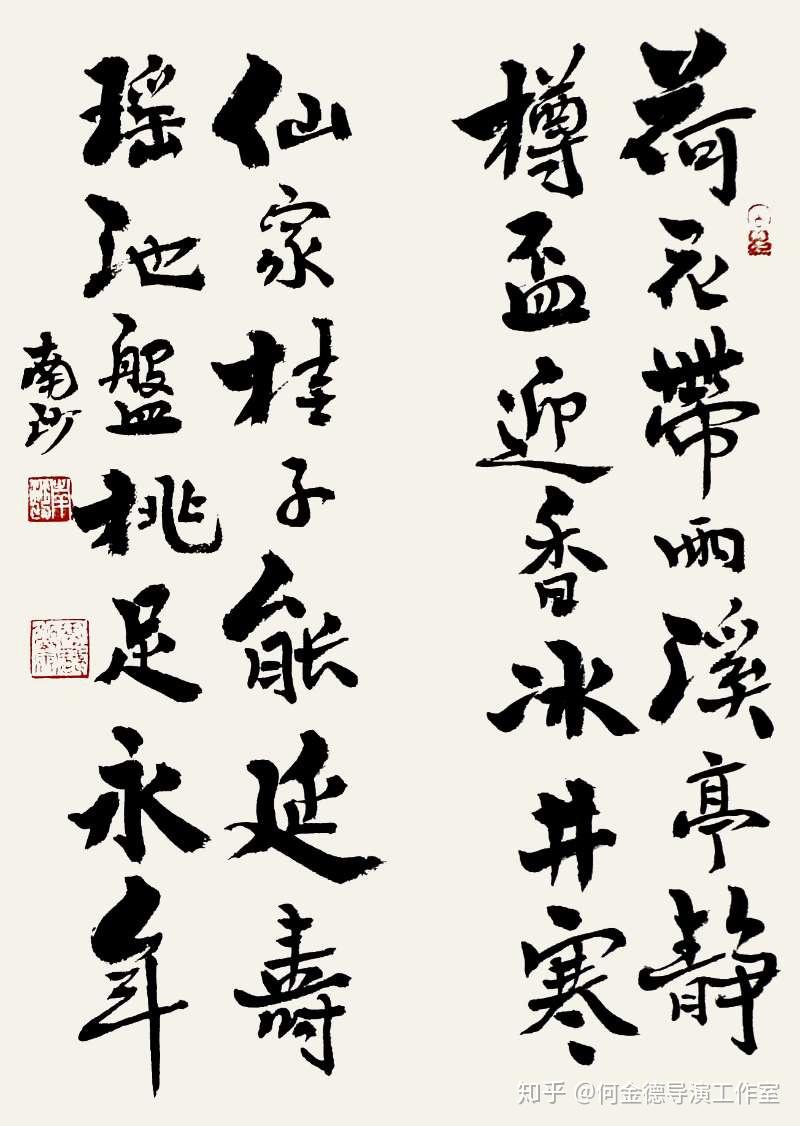 荷花帶雨溪亭靜
樽盃迎香冰井寒
仙家桂子能延壽
瑤池盤桃足永年
南沙
知乎 @何金德导演工作室